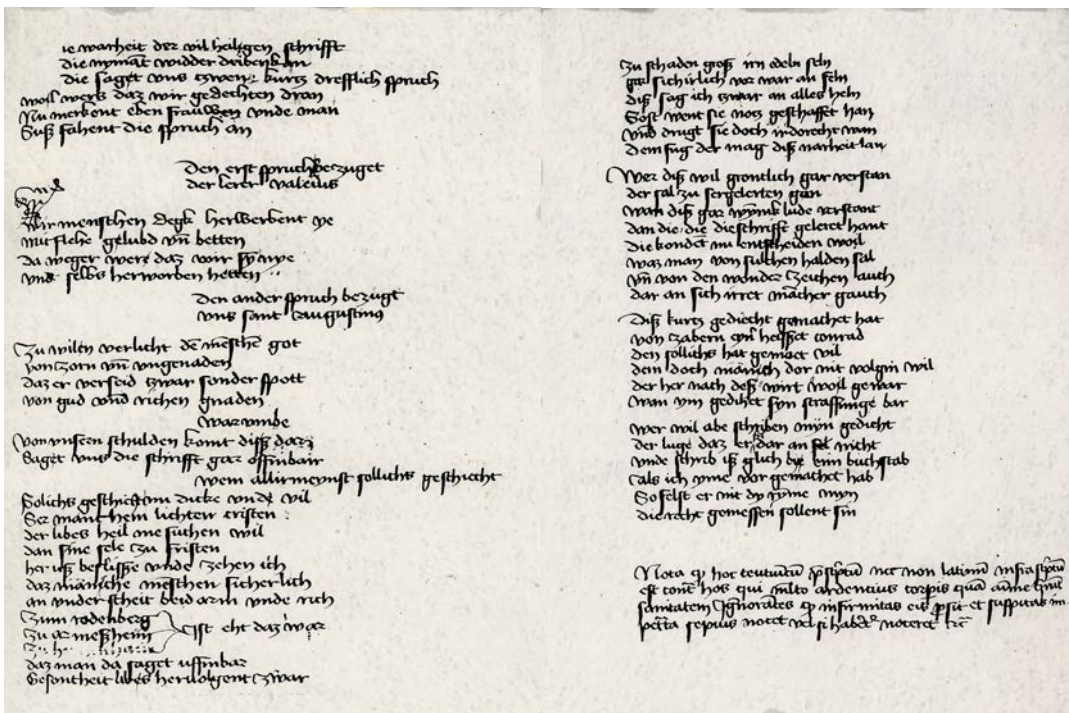 ie warheit der vil heiligen schrifft
die nymāt widder driben kan
die saget vns zwen kurtz drefflich spruch
woil wers daz wir gedechten dran
Nu merkent eben frauwen vnde man
Suß fahent die spruch an
Den erst spruch bezuget
der lerer valerius
Wir menschen degk herwerbent ye
mit flehe gelubd vn̄ betten
da weger were daz wir sy nye
vnd selbs herworben hetten
Den ander spruch bezugt
vns sant augustinus
Zu wilen verlicht dē mēschē got
von zorn vn̄ vngenaden
daz er verseid zwar sonder spott
von gud vnd richen gnaden
war vmbe
Von vnsern schulden komt diß dar
Saget vns die schrifft gar offinbair
wem allir meynst sollichs geschicht
Solichs geschicht dicke vnde vil
hem lichten cristen
der libes heil me suchen wil
dan sine sele zu fristen
her vß beslisse vnde zehen ich
daz mānche mēschen sicherlich
an vnderscheit beid arm vnde rich
Zum rodenberg
Zu armeßheim
Zu
eist eht daz war
daz man da saget uffinbar
Gesontheit libes hervolgent zwar
Zu schaden groß irn edeln seln
gar sicherlich vor war an feln
diß sag ich zwar an alles heln
Sost went sie nocz geschaffet han
vnd drugt sie doch ir dorecht wan
Dem fug der mag diß narheit lan
Wer diß wil grontlich gar verstan
der sal zu sergelerten gan
wan diß gar wynnk lude verstant
dan die die die schrifft geleret hant
die kondēt nu entscheiden woil
waz man von sulchen halden sal
vn̄ von den wonder zeichen auch
dar an sich irret mācher gauch
Diß kurtz gediecht gemachet hat
von zabern eyn heisset conrad
den sollichs hat gemoet vil
dem doch mānich dor nit volgin wil
der her nach deß wirt woil gewar
wan ym gedihet syn straffinge bar
wer wil abe schriben myn gedicht
der luge daz er dar an fel nicht
vnde schrib iß glich bye eim buchstab
als ich yme vor gemachet hab
So felst er nit dy ryme myn
die recht gemessen sollent sin
Nota hoc teuticū scriptū nec non latinū infra scriptū
est contra hos qui multo ardencius corpis quā anime
sanitatem Ignorātes infirmitas eis et
sepius nocet vel si haberet noceret